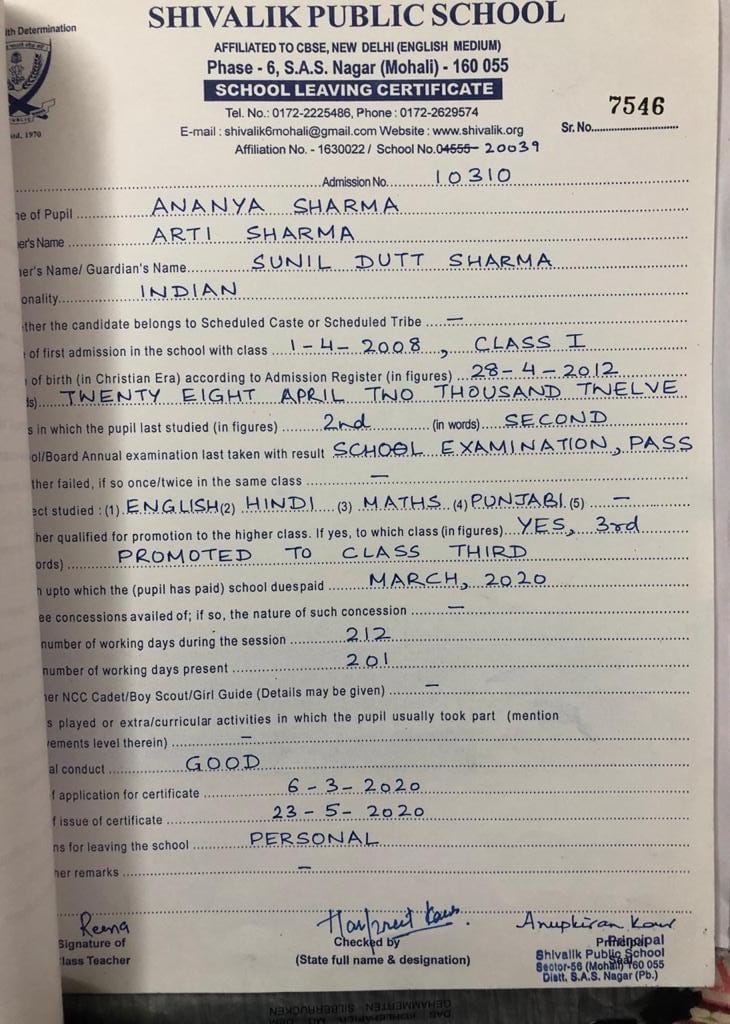 ith Determination
SHIVALIK PUBLIC SCHOOL
AFFILIATED TO CBSE, NEW DELHI (ENGLISH MEDIUM)
Phase - 6, S.A.S. Nagar (Mohali) - 160 055
SCHOOL LEAVING CERTIFICATE
Tel. No.: 0172-2225486, Phone : 0172-2629574
E-mail : shivalik6mohali@gmail.com Website : www.shivalik.org
Affiliation No. - 1630022 / School No. 04555 - 20039
7546
Sr. No.
1970
Admission No. 10310
e of Pupil ANANYA SHARMA
er's Name ARTI SHARMA
er's Name/ Guardian's Name SUNIL DUTT SHARMA
onality INDIAN
ther the candidate belongs to Scheduled Caste or Scheduled Tribe —
of first admission in the school with class 1-4-2008, CLASS I
of birth (in Christian Era) according to Admission Register (in figures) 28-4-2012
s) TWENTY EIGHT APRIL TWO THOUSAND TWELVE
s in which the pupil last studied (in figures) 2nd (in words) SECOND
ol/Board Annual examination last taken with result SCHOOL EXAMINATION, PASS
ther failed, if so once/twice in the same class —
ect studied : (1) ENGLISH (2) HINDI (3) MATHS (4) PUNJABI (5) —
her qualified for promotion to the higher class. If yes, to which class (in figures) YES, 3rd
ords) PROMOTED TO CLASS THIRD
h upto which the (pupil has paid) school duespaid MARCH, 2020
ee concessions availed of; if so, the nature of such concession —
number of working days during the session 212
number of working days present 201
er NCC Cadet/Boy Scout/Girl Guide (Details may be given) —
s played or extra/curricular activities in which the pupil usually took part (mention
ements level therein) —
al conduct GOOD
f application for certificate 6-3-2020
f issue of certificate 23-5-2020
ns for leaving the school PERSONAL
er remarks —
Reena
Signature of
lass Teacher
Harpreet Kaur.
Checked by
(State full name & designation)
Anupkiran Kaur
Principal
Principal
Shivalik Public School
Seal
Sector-56 (Mohali) 160 055
Distt. S.A.S. Nagar (Pb.)